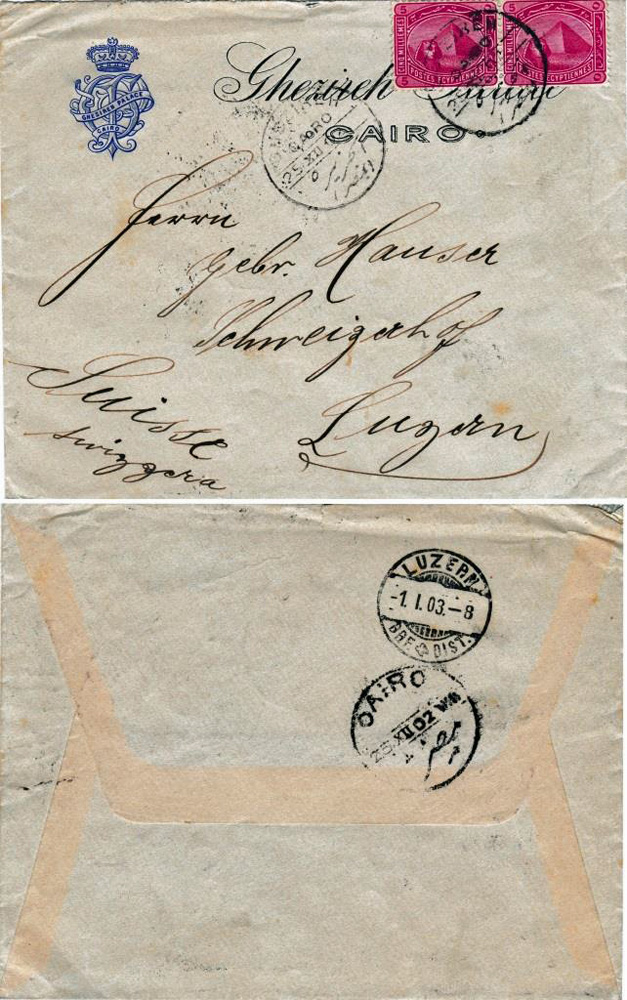 GHEZIREH PALACE
CAIRO
Ghezireh
CAIRO
5
5
CINQ MILLIEMES
POSTES EGYPTIENNES
POSTES EGYPTIENNES
CAIRO
25 XII
Herrn
Gebr. Hauser
Schweizerhof
Luzern
Suisse
Swizzera
LUZERN
-1. I. 03.-8
BRF DIST.
CAIRO
25 XII 02